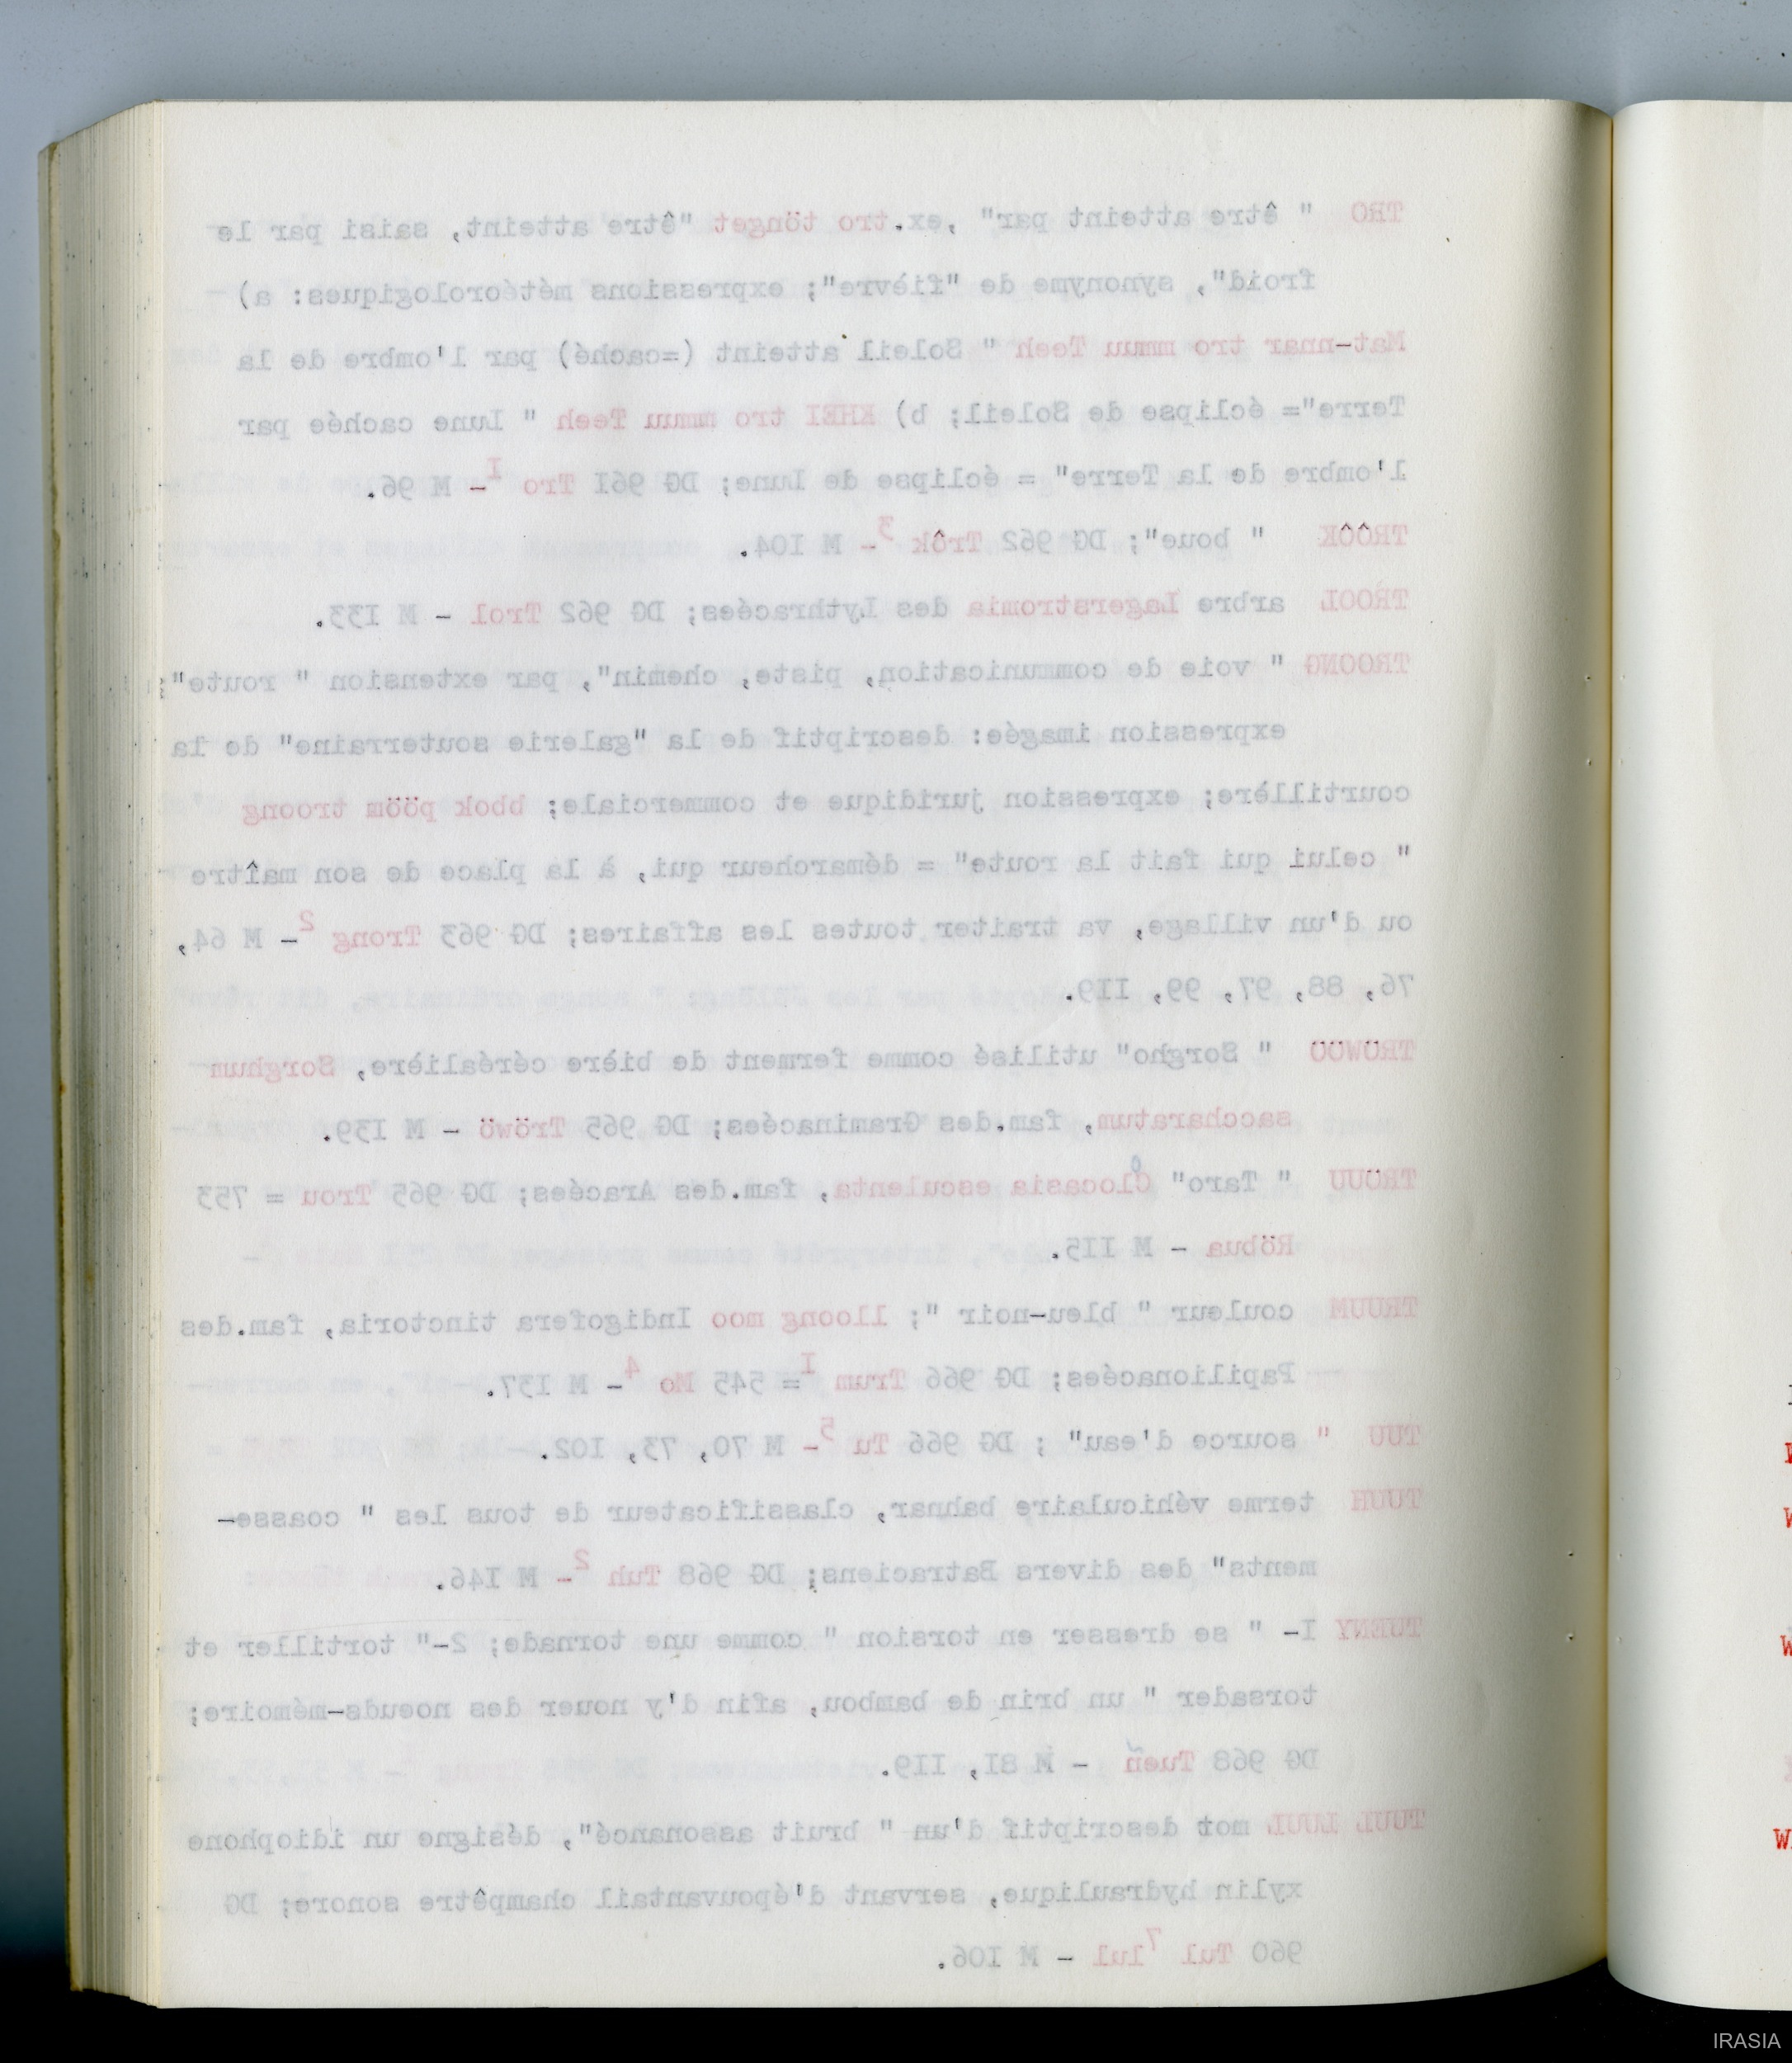 TRO " être atteint par" ,ex.tro tönget "être atteint, saisi par le
froid", synonyme de "fièvre"; expressions météorologiques: a)
Mat-nnar tro mmuu Teeh " Soleil atteint (=caché) par l'ombre de la
Terre"= éclipse de Soleil; b) KHEI tro mmuu Teeh " Lune cachée par
l'ombre de la Terre" = éclipse de Lune; DG 96I Tro I- M 96.
TRÔÔK " boue"; DG 962 Trôk 3- M I04.
TROOL arbre Lagerstromia des Lythracées; DG 962 Trol - M I33.
TROONG " voie de communication, piste, chemin", par extension " route";
expression imagée: descriptif de la "galerie souterraine" de la
courtillère; expression juridique et commerciale; bbok pööm troong
" celui qui fait la route" = démarcheur qui, à la place de son maître
ou d'un village, va traiter toutes les affaires; DG 963 Trong 2- M 64,
76, 88, 97, 99, II9.
TRÖWÖÖ " Sorgho" utilisé comme ferment de bière céréalière, Sorghum
saccharatum, fam.des Graminacées; DG 965 Tröwö - M I39.
TRÖUU " Taro" Clocasia esculenta, fam.des Aracées; DG 965 Trou = 753
Röbua - M II5.
TRUUM couleur " bleu-noir "; lloong moo Indigofera tinctoria, fam.des
Papilionacées; DG 966 Trum I= 545 Mo 4- M I37.
TUU " source d'eau" ; DG 966 Tu 5- M 70, 73, I02.
TUUH terme véhiculaire bahnar, classificateur de tous les " coasse-
ments" des divers Batraciens; DG 968 Tuh 2- M I46.
TUENY I- " se dresser en torsion " comme une tornade; 2-" tortiller et
torsader " un brin de bambou, afin d'y nouer des noeuds-mémoire;
DG 968 Tueñ - M 8I, II9.
TUUL LUUL mot descriptif d'un " bruit assonancé", désigne un idiophone
xylin hydraulique, servant d'épouvantail champêtre sonore; DG
960 Tul 7lul - M I06.
IRASIA